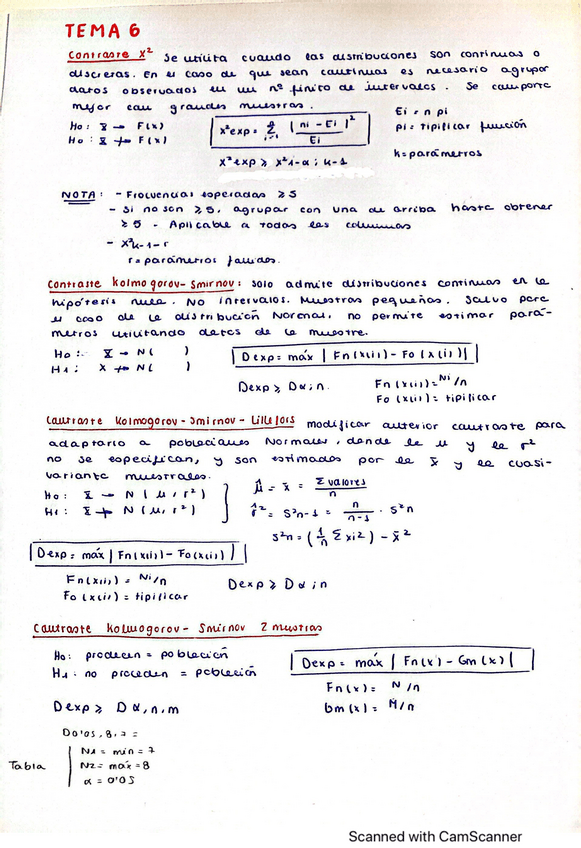 TEMA 6
Contraste X² Se utiliza cuando las distribuciones son continuas o
discreras. En el caso de que sean continuas es necesario agrupar
datos observados en un nº finito de intervalos. Se comporta
mejor con grandes muestras.
Ho: X → F(x)
Ho: X ↛ F(x)
X²exp = Σ (ni - Ei)² / Ei
X²exp ≥ X²1-α; k-1
Ei = n pi
pi = tipificar función
k = parámetros
NOTA: - Frecuencias esperadas ≥ 5
- Si no son ≥ 5, agrupar con una de arriba hasta obtener
≥ 5 - Aplicable a todas las columnas
- X²k-1-r
r = parámetros
Contraste Kolmogorov-Smirnov: solo admite distribuciones continuas en la
hipótesis nula. No intervalos. Muestras pequeñas. Salvo para
el caso de la distribución Normal, no permite estimar pará-
metros utilizando datos de la muestra.
Ho: X → N( )
H1: X ↛ N( )
Dexp = máx | Fn(x(i)) - Fo(x(i)) |
Dexp ≥ Dα; n
Fn(x(i)) = Ni/n
Fo(x(i)) = tipificar
Contraste Kolmogorov-Smirnov-Lillefors modificar anterior contraste para
adaptarlo a poblaciones Normales, donde la μ y la σ²
no se especifican, y son estimados por la x̄ y la cuasi-
varianta muestrales.
Ho: X → N(μ, σ²)
H1: X ↛ N(μ, σ²)
μ̂ = x̄ = Σ valores / n
σ̂² = S²n-1 = n/n-1 · S²n
S²n = (1/n Σ xi²) - x̄²
Dexp = máx | Fn(x(i)) - Fo(x(i)) |
Fn(x(i)) = Ni/n
Fo(x(i)) = tipificar
Dexp ≥ Dα; n
Contraste Kolmogorov-Smirnov 2 muestras
Ho: proceden = población
H1: no proceden = población
Dexp = máx | Fn(x) - Gm(x) |
Fn(x) = N/n
Gm(x) = M/n
Dexp ≥ Dα, n, m
D0'05, 8, 7 =
Tabla
N1 = min = 7
N2 = max = 8
α = 0'05
Scanned with CamScanner